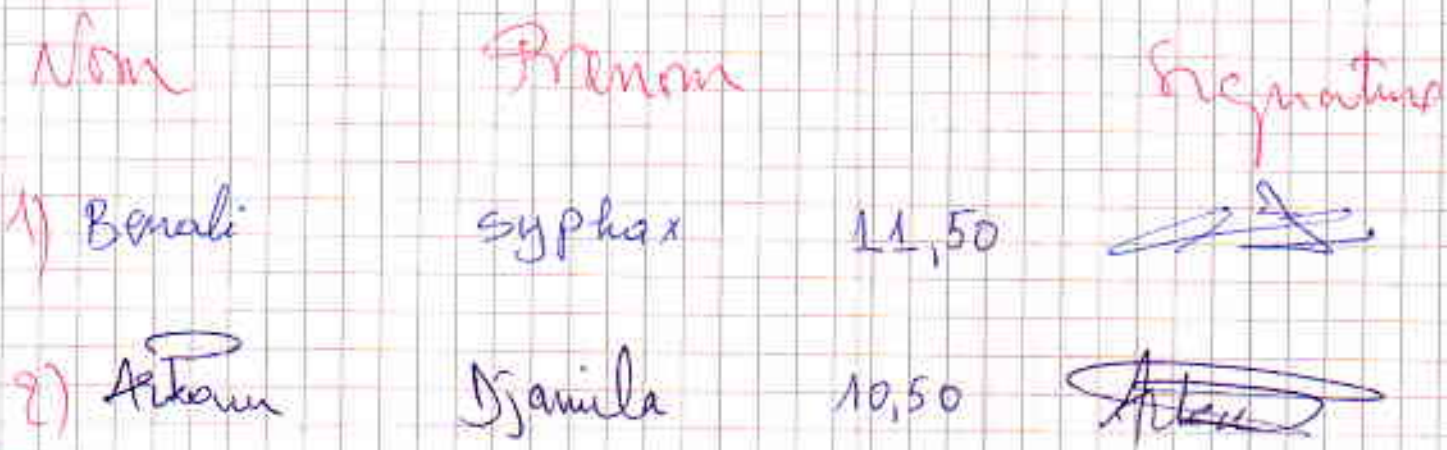 Nom Prenom Signature
1) Benali syphax 11,50
2) Djamila 10,50